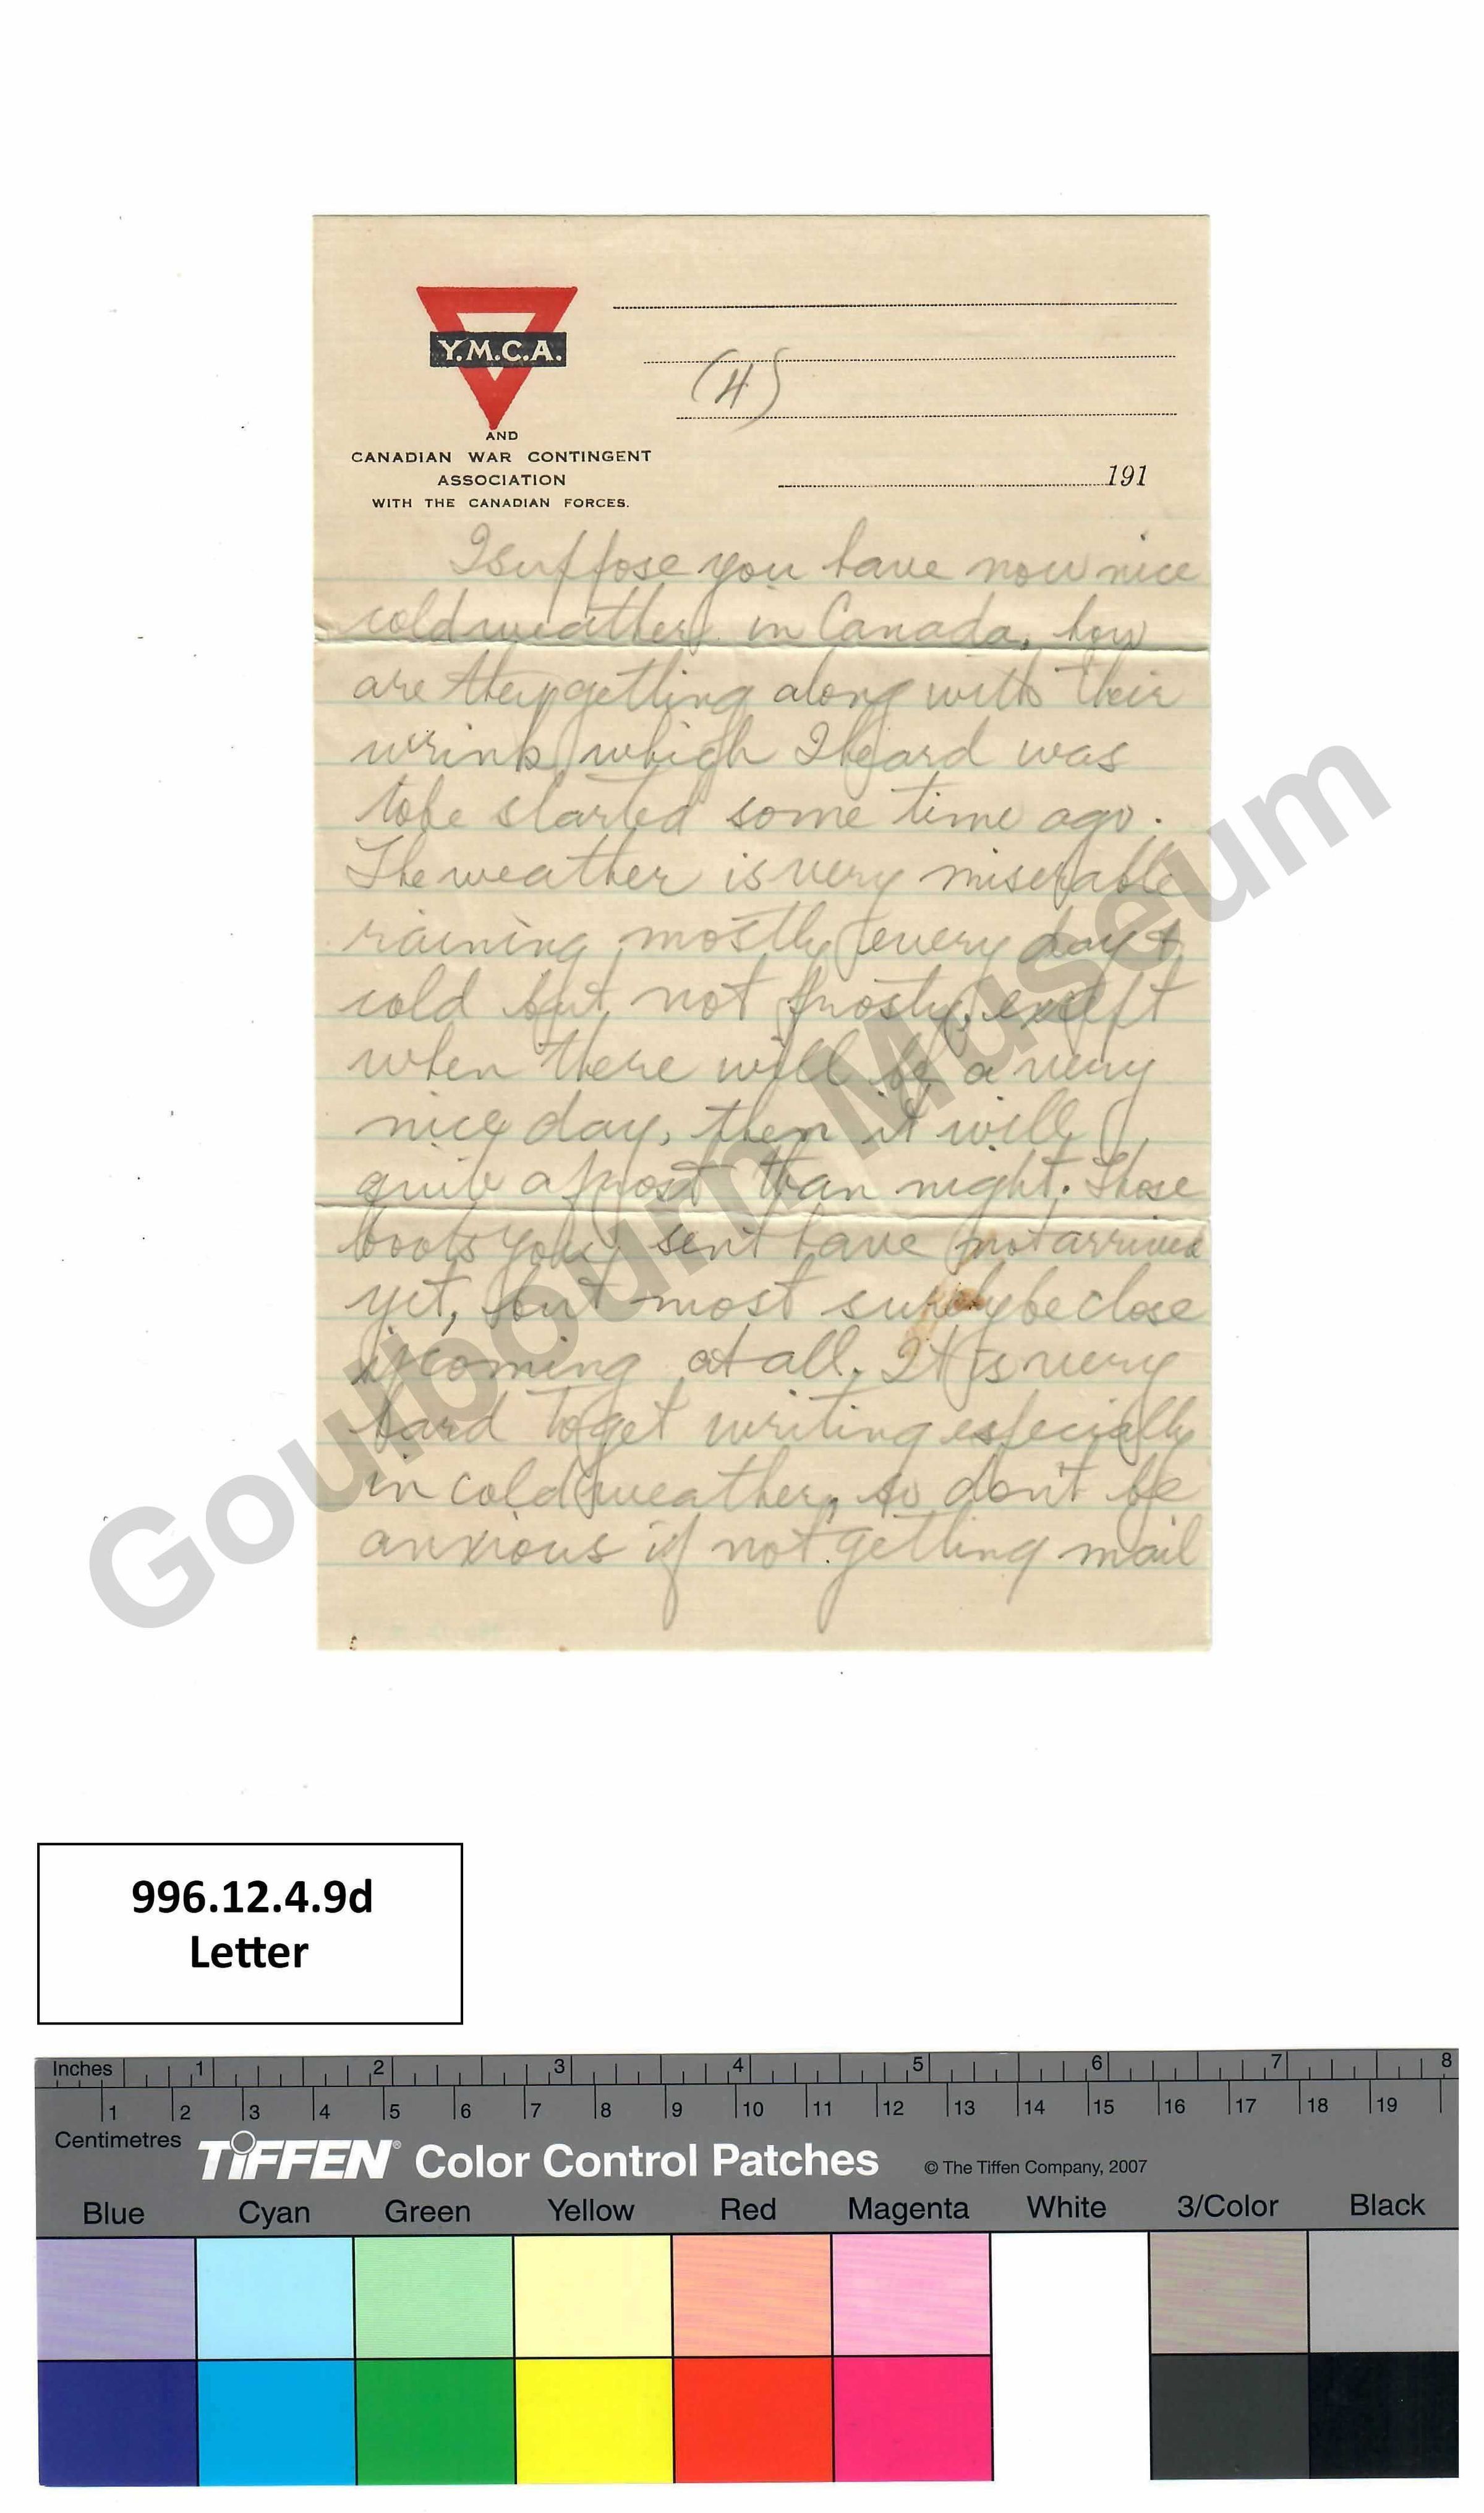 Y.M.C.A.
AND
CANADIAN WAR CONTINGENT
ASSOCIATION
WITH THE CANADIAN FORCES.
(4)
191
I suppose you have now nice
cold weather in Canada, how
are they getting along with their
wrink, which I heard was
to be started some time ago.
The weather is very miserable
raining mostly every day &
cold but not frosty, except
when there will be a very
nice day, then it will
quite a frost than night. Those
boots you sent have not arrived
yet, but most surely be close
if coming at all. It is very
hard to get writing especially
in cold weather, so don't be
anxious if not getting mail
Goulbourn Museum
996.12.4.9d
Letter
Inches 1 2 3 4 5 6 7 8
1 2 3 4 5 6 7 8 9 10 11 12 13 14 15 16 17 18 19
Centimetres
TIFFEN® Color Control Patches © The Tiffen Company, 2007
Blue Cyan Green Yellow Red Magenta White 3/Color Black